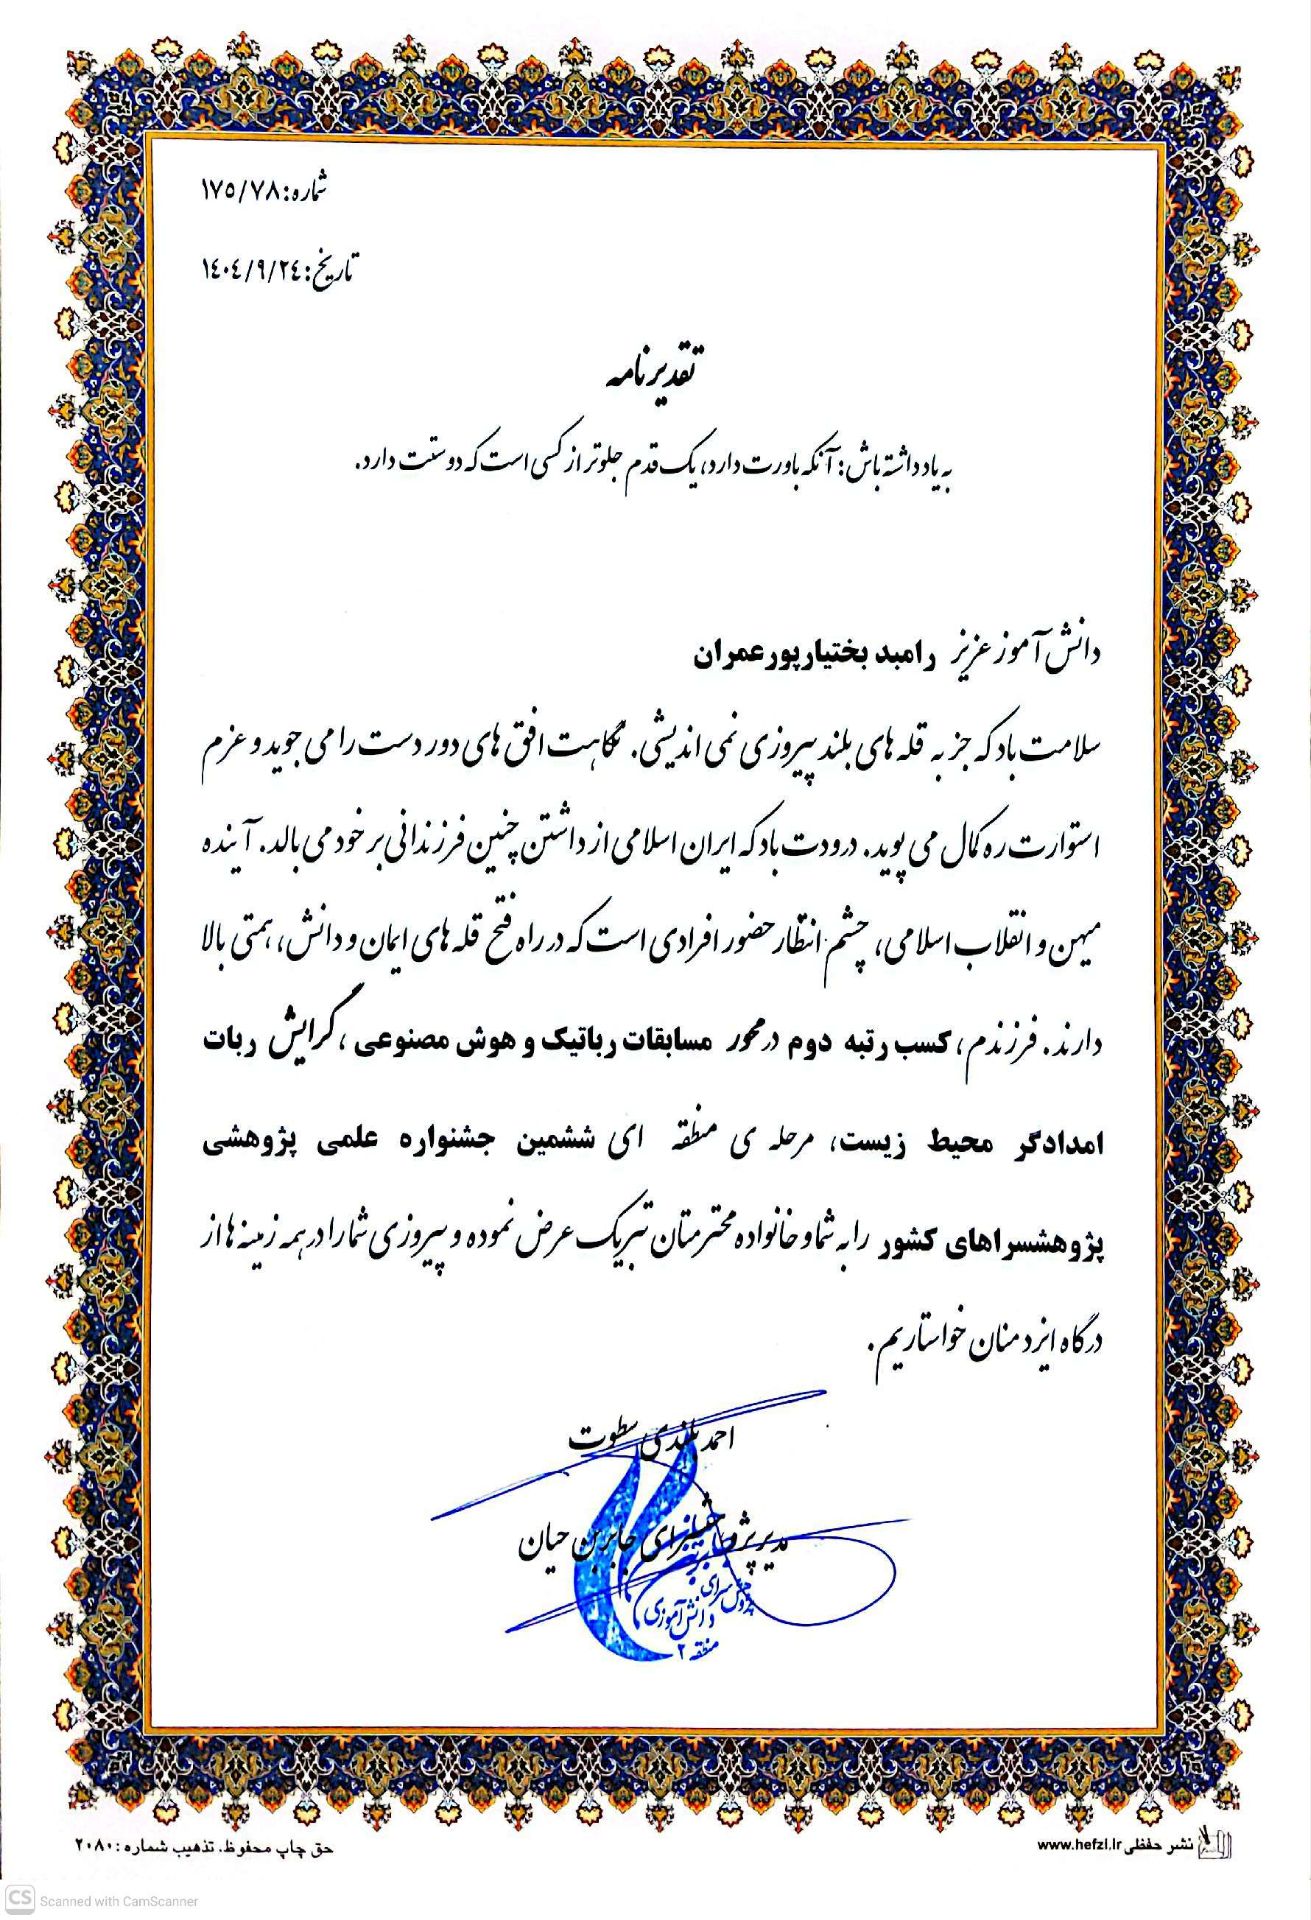 شماره: ۱۷۵/۷۸
تاریخ: ۱۴۰۴/۹/۲۴
تقدیرنامه
به یاد داشته باش: آنکه باورت دارد، یک قدم جلوتر از کسی است که دوستت دارد.
دانش آموز عزیز رامبد بختیارپور عمران
سلامت باد که جز به قله های بلند پیروزی نمی اندیشی. نگاهت افق های دور دست را می جوید و عزم
استوارت ره کمال می پوید. درودت باد که ایران اسلامی از داشتن چنین فرزندانی بر خود می بالد. آینده
میهن و انقلاب اسلامی، چشم انتظار حضور افرادی است که در راه فتح قله های ایمان و دانش، همتی بالا
دارند. فرزندم، کسب رتبه دوم در محور مسابقات رباتیک و هوش مصنوعی، گرایش ربات
امدادگر محیط زیست، مرحله ی منطقه ای ششمین جشنواره علمی پژوهشی
پژوهشسراهای کشور را به شما و خانواده محترمتان تبریک عرض نموده و پیروزی شما را در همه زمینه ها از
درگاه ایزد منان خواستاریم.
احمد بلندی سطوت
مدیر پژوهشسرای جابر بن حیان
پژوهش سرای
دانش آموزی
منطقه ۲
نشر حفظی www.hefzi.ir
حق چاپ محفوظ. تذهیب شماره: ۲۰۸۰
CS Scanned with CamScanner